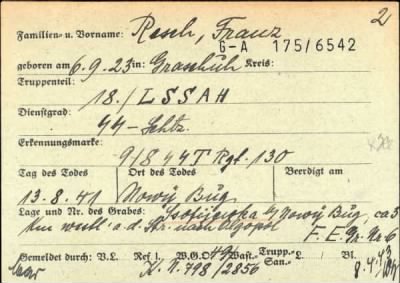 2
Familien- u. Vorname: Resch, Franz
G-A 175/6542
geboren am 6.9.23 in: Kreis:
Truppenteil:
18./LSSAH
Dienstgrad:
SS-Schtz.
Erkennungsmarke:
9/8 SS T Rgt. 130
Tag des Todes Ort des Todes Beerdigt am
13.8.41 Nowy Bug
Lage und Nr. des Grabes: b/ Nowy Bug, ca 3
km westl. a.d. Str. nach Olgopol
F. E. Gr. Nr. 6
Gemeldet durch: V.L. Ref I. W.G.O. Wast.- Trupp.- San.- L. Bl.
K. N. 798/2856 8.4.43